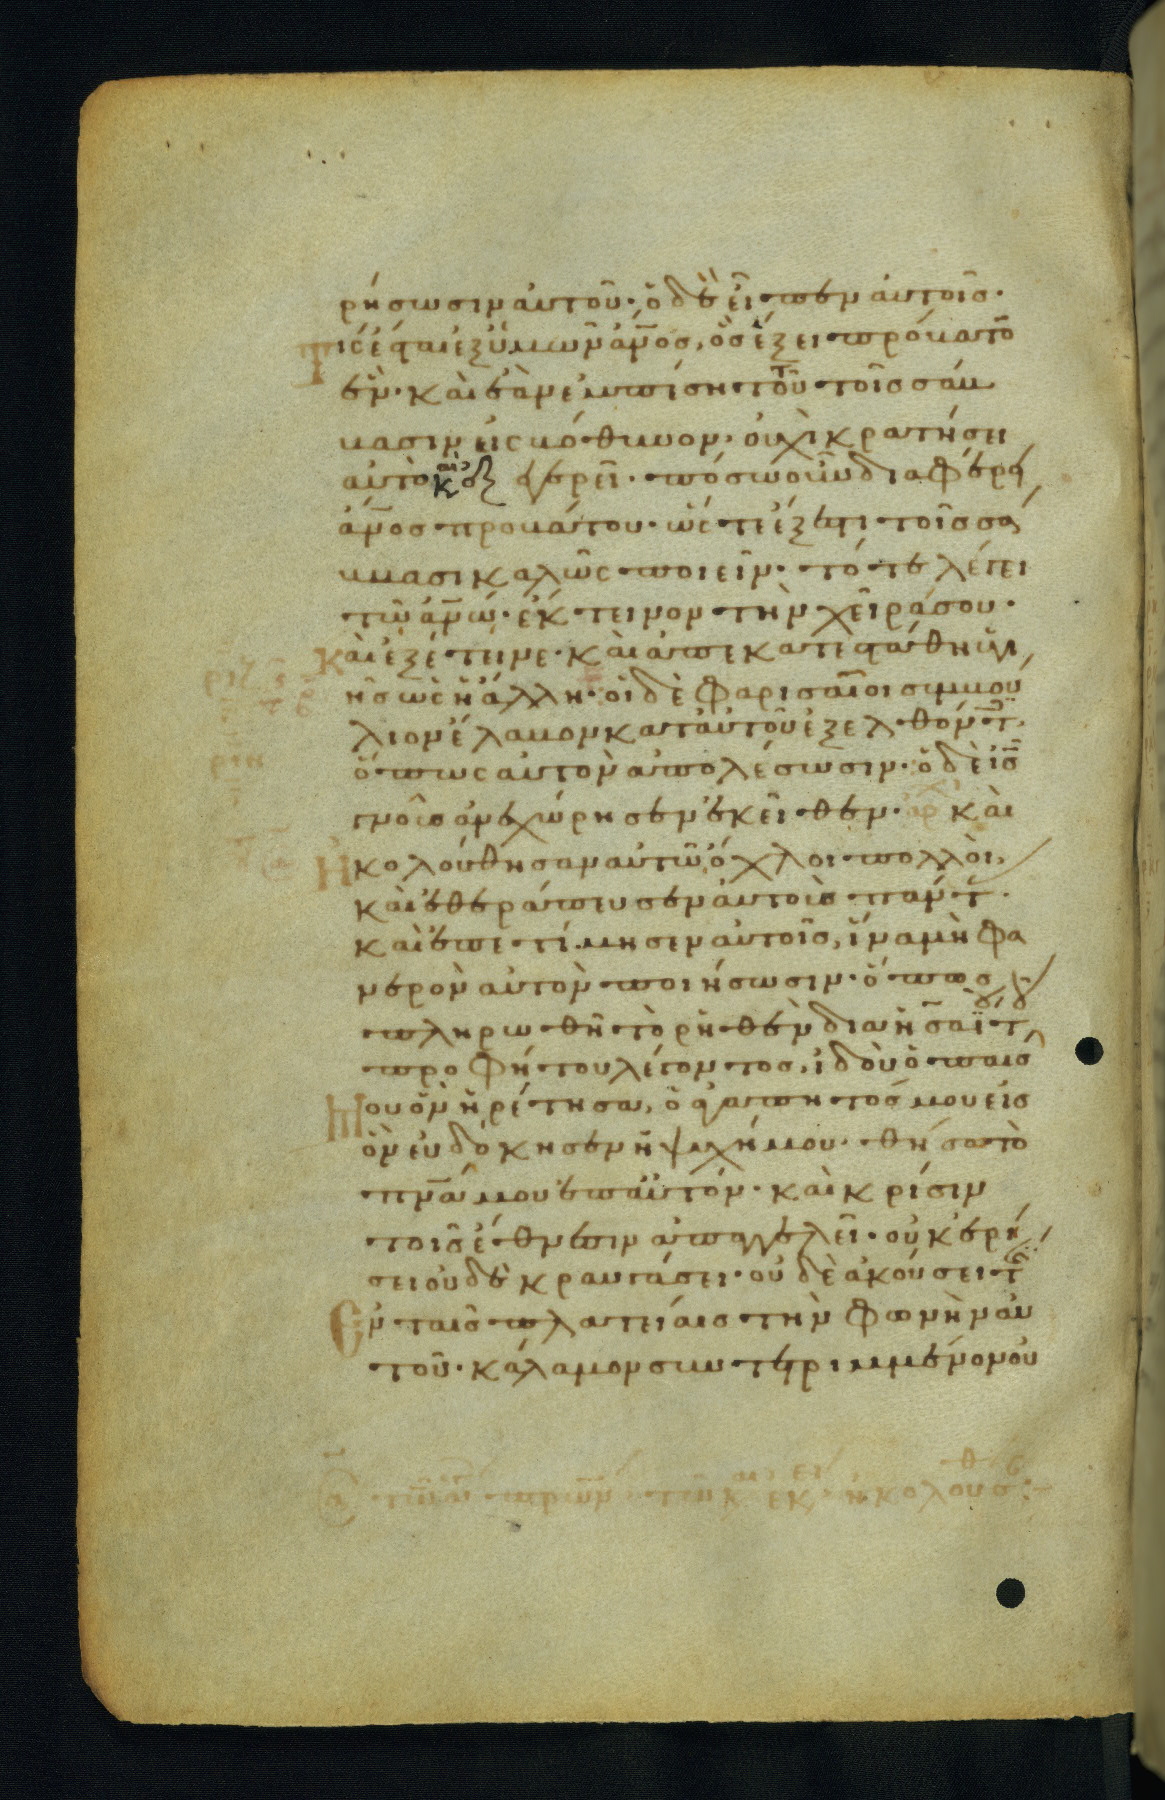 ρήσωσιν αὐτοῦ· ὁ δὲ εἶπεν αὐτοῖς·
Τίς ἔσται ἐξ ὑμῶν ἄνος, ὃς ἕξει πρόβατο
ἕν· καὶ ἐὰν ἐμπέση τοῦτο τοῖς σάβ
βασιν εἰς βόθυνον· οὐχὶ κρατήσει
αὐτὸ καὶ ἐξ εγερεῖ· πόσω οὖν διαφέρει
ἄνος προβάτου· ὥστε ἔξεστι τοῖς σά
ββασι καλῶς ποιεῖν· τότε λέγει
τῶ ἀνω· ἔκτεινον τὴν χεῖρά σου·
Καὶ ἐξέτεινε· καὶ ἀπεκατεστάθη ὑγι
ὴς ὡς ἡ ἄλλη· οἱ δὲ φαρισαῖοι συμβού
λιον ἔλαβον κατ αὐτοῦ ἐξελθόντ
ὅπως αὐτὸν ἀπολέσωσιν· ὁ δὲ ις
γνοὺς ἀνεχώρησεν ἐκεῖθεν· αρχ καὶ
Ἠκολούθησαν αὐτῶ ὄχλοι πολλοὶ,
καὶ ἐθεράπευσεν αὐτοὺς πάντ·
καὶ ἐπετίμησεν αὐτοῖς, ἵνα μὴ φα
νερὸν αὐτὸν ποιήσωσιν· ὅπως
πληρωθῆ τὸ ρηθὲν διὰ ησαΐου τ
προφήτου λέγοντος, ἰδοὺ ὁ παῖς
Μου ὃν ἡρέτησα, ὁ ἀγαπητός μου εἰς
ὃν εὐδόκησεν ἡ ψυχή μου· θήσω τὸ
πνα μου ἐπ αὐτόν· καὶ κρίσιν
τοῖς ἔθνεσιν ἀπαγγελεῖ· οὐκ ἐρί
σει οὐδὲ κραυγάσει· οὐδὲ ἀκούσει τ
Ἐν ταῖς πλατείαις τὴν φωνὴν αὐ
τοῦ· κάλαμον συντετριμμένον οὐ